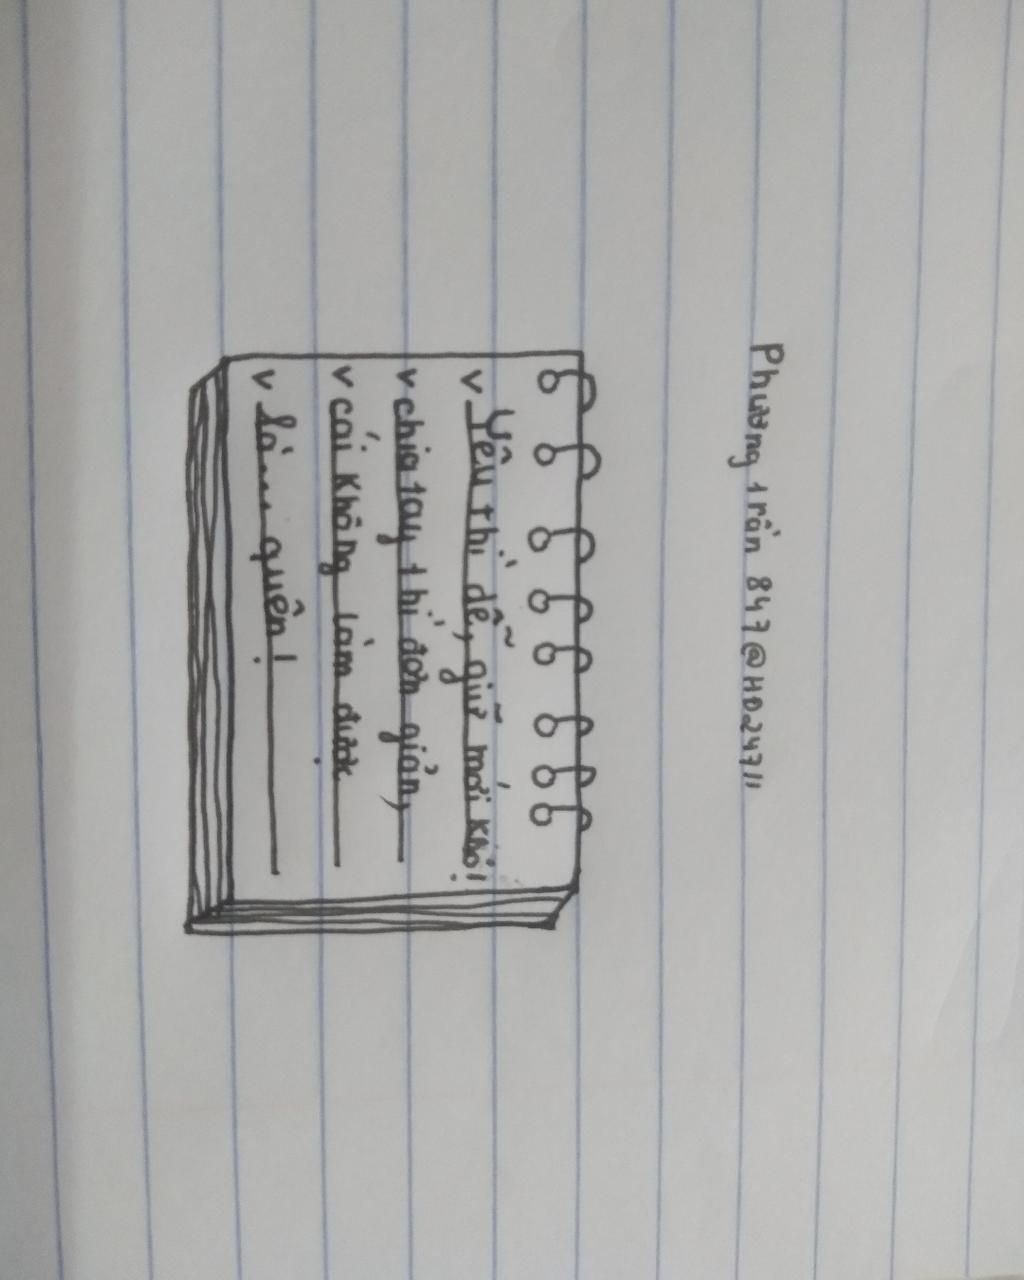 Phương trần 847@HD24711
v Yêu thì dễ, giữ mới khó!
v chia tay thì đơn giản,
v cái không làm được
v là quên!